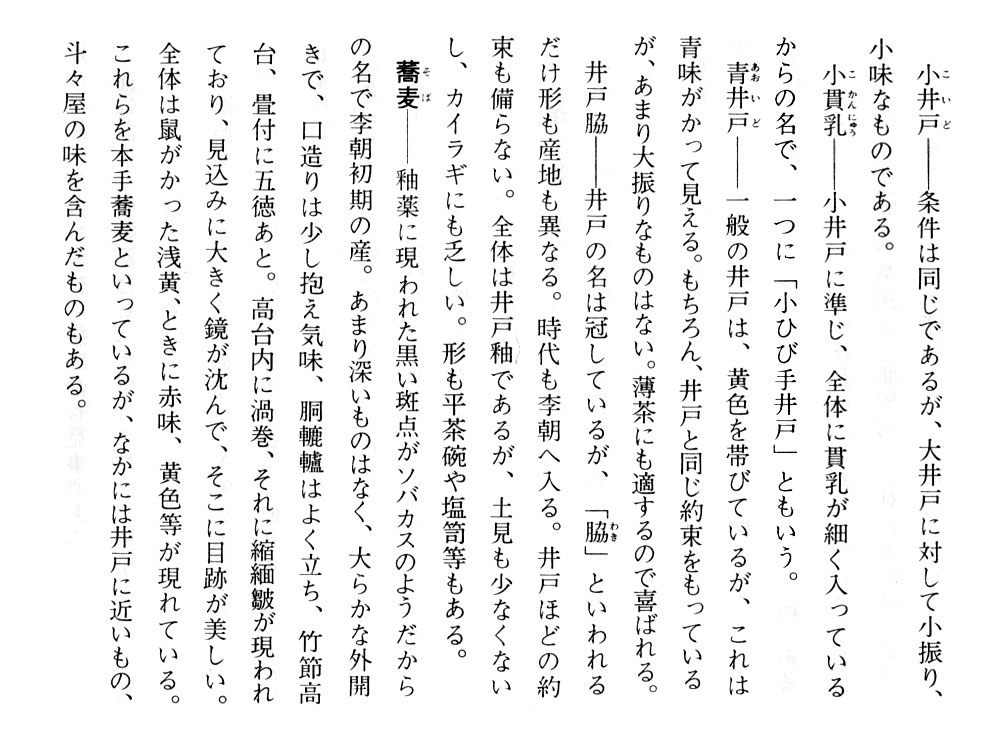 小井戸――条件は同じであるが、大井戸に対して小振り、
小味なものである。
小貫乳――小井戸に準じ、全体に貫乳が細く入っている
からの名で、一つに「小ひび手井戸」ともいう。
青井戸――一般の井戸は、黄色を帯びているが、これは
青味がかって見える。もちろん、井戸と同じ約束をもっている
が、あまり大振りなものはない。薄茶にも適するので喜ばれる。
井戸脇――井戸の名は冠しているが、「脇」といわれる
だけ形も産地も異なる。時代も李朝へ入る。井戸ほどの約
束も備らない。全体は井戸釉であるが、土見も少なくない
し、カイラギにも乏しい。形も平茶碗や塩笥等もある。
蕎麦――釉薬に現われた黒い斑点がソバカスのようだから
の名で李朝初期の産。あまり深いものはなく、大らかな外開
きで、口造りは少し抱え気味、胴轆轤はよく立ち、竹節高
台、畳付に五徳あと。高台内に渦巻、それに縮緬皺が現われ
ており、見込みに大きく鏡が沈んで、そこに目跡が美しい。
全体は鼠がかった浅黄、ときに赤味、黄色等が現れている。
これらを本手蕎麦といっているが、なかには井戸に近いもの、
斗々屋の味を含んだものもある。